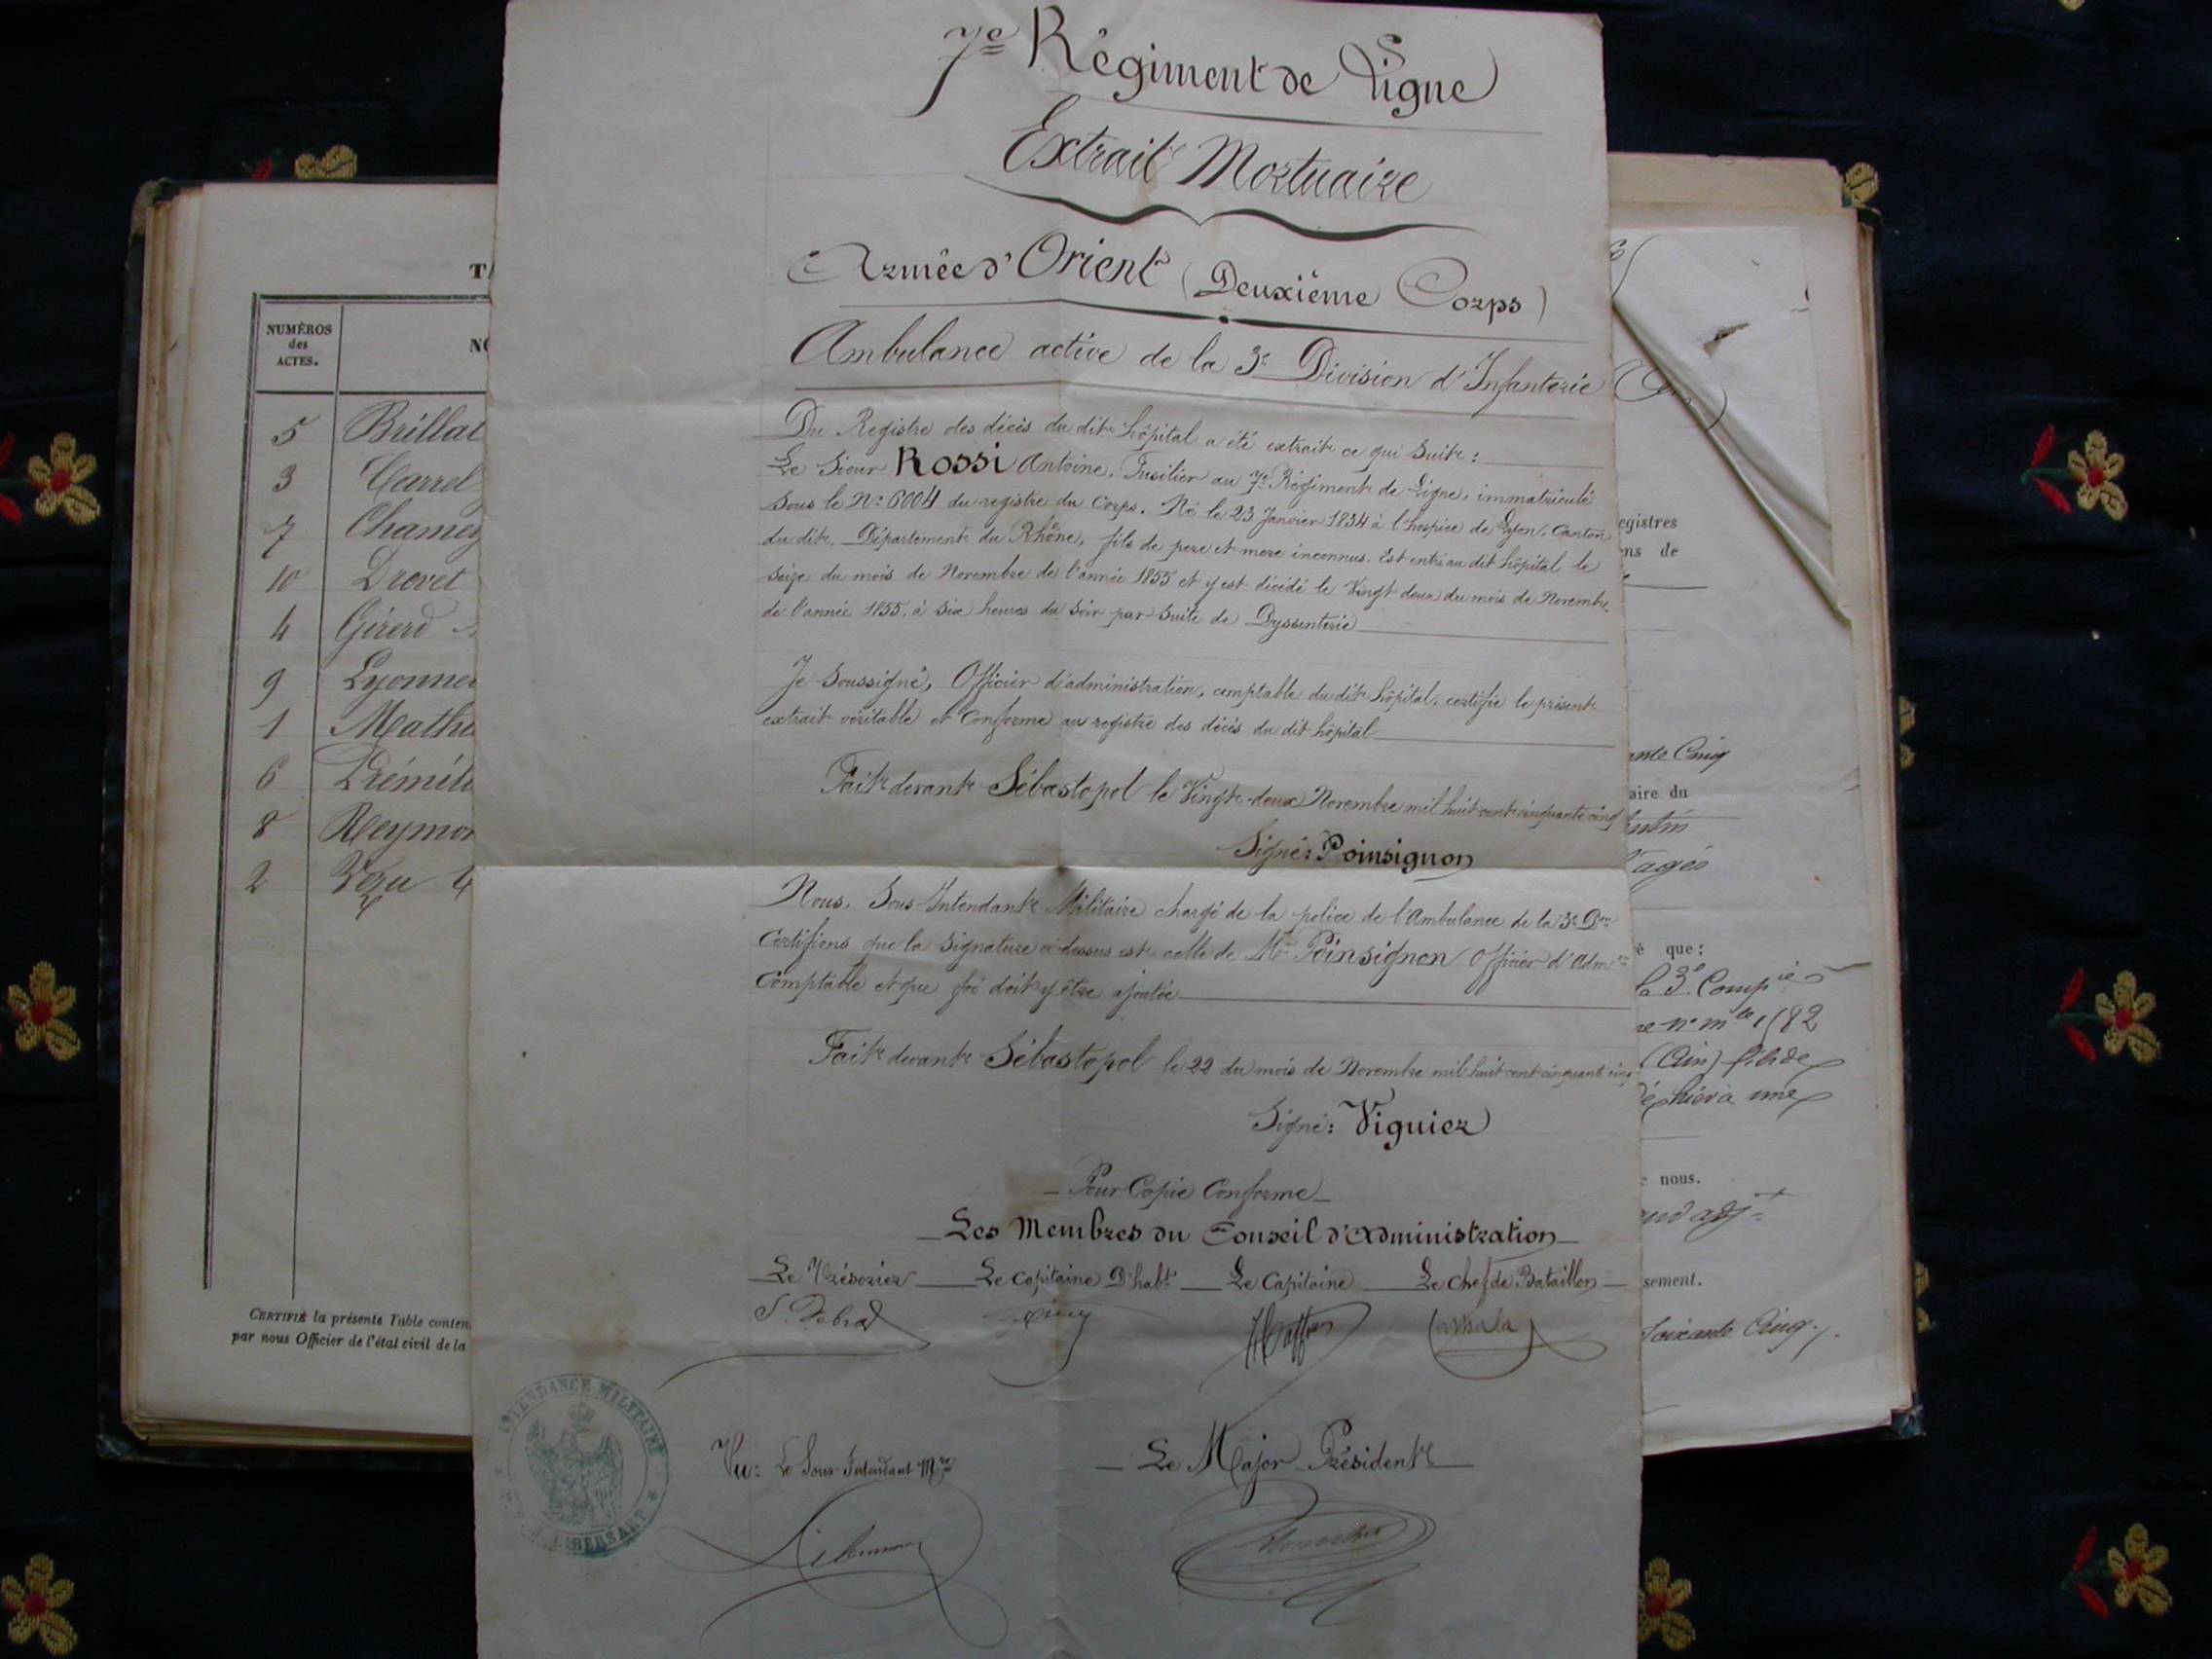 7e Régiment de Ligne
Extrait Mortuaire
Armée d'Orient (Deuxième Corps)
Ambulance active de la 3e Division d'Infanterie
Du Registre des décès du dit hôpital a été extrait ce qui suit :
Le Sieur Rossi Antoine, Fusilier au 7e Régiment de Ligne, immatriculé
sous le No 6004 du registre du Corps. Né le 23 Janvier 1834 à l'hospice de Lyon, Canton
du dit, Département du Rhône, fils de pere et mere inconnus. Est entré au dit hôpital le
seize du mois de Novembre de l'année 1855 et y est décédé le Vingt deux du mois de Novembre
de l'année 1855, à six heures du soir par suite de Dyssenterie
Je soussigné, Officier d'administration, comptable du dit hôpital, certifie le présent
extrait véritable et Conforme au registre des décès du dit hôpital
Fait devant Sébastopol le Vingt-deux Novembre mil huit cent cinquante cinq
Signé : Poinsignon
Nous, Sous-Intendant Militaire chargé de la police de l'Ambulance de la 3e Don
Certifions que la signature ci-dessus est celle de Mr Poinsignon Officier d'Adm on
Comptable et que foi doit y être ajoutée
Fait devant Sébastopol le 22 du mois de Novembre mil huit cent cinquante cinq
Signé : Viguier
Pour Copie Conforme
Les Membres du Conseil d'administration
Le Trésorier Le Capitaine D'habt Le Capitaine Le Chef de Bataillon
Vu : Le Sous Intendant Mre
Le Major Président
INTENDANCE MILITAIRE
NUMÉROS
des
ACTES.
5 Brillat
3 Carrel
7 Chamey
10 Drevet
4 Gérerd
9 Lyonnet
1 Mathe
6 Prémil
8 Reymon
2 Vezu
CERTIFIÉ la présente Table conten
par nous Officier de l'état civil de la
egistres
ns de
ante Cinq
aire du
agés
é que :
la 3e Compie
re no mle 1582
(Ain) fils de
hier à une
e nous.
adjt
sement.
soixante Cinq